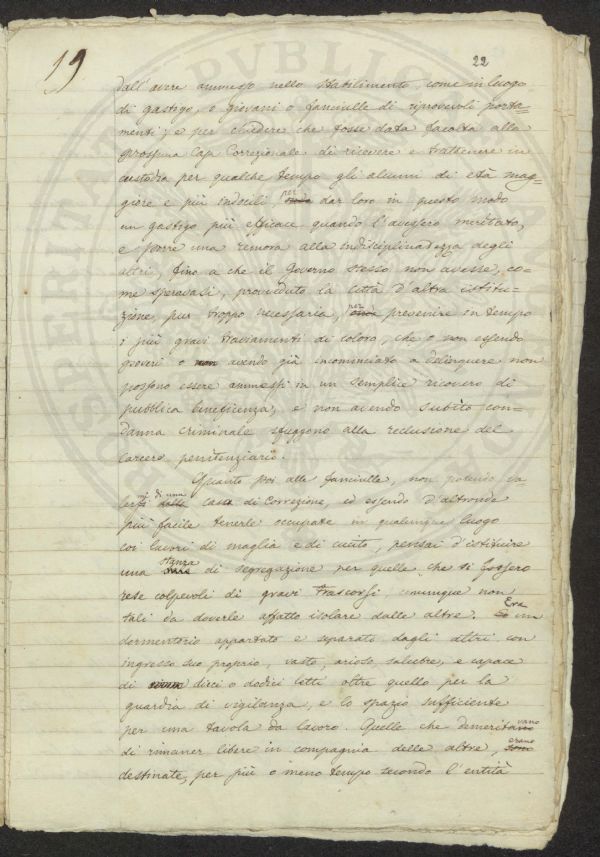 19
22
dall'avere ammesso nello Stabilimento, come in luogo
di gastigo, o giovani o fanciulle di riprovevoli porta-
menti; e per chiedere che fosse data facoltà alla
prossima Casa Correzionale di ricevere e trattenere in
custodia per qualche tempo gli alunni di età mag-
giore e più indocili, per dar loro in questo modo
un gastigo più efficace quando l'avessero meritato,
e porre una remora alla indisciplinatezza degli
altri, fino a che il Governo stesso non avesse, co-
me speravasi, provveduto la città d'altra istitu-
zione, pur troppo necessaria, per prevenire in tempo
i più gravi traviamenti di coloro, che o non essendo
poveri o non avendo già incominciato a delinquere non
possono essere ammessi in un semplice ricovero di
pubblica beneficenza, e non avendo subito con-
danna criminale sfuggono alla reclusione del
Carcere penitenziario.
Quanto poi alle fanciulle, non potendo va-
lermi di una casa di Correzione, ed essendo d'altronde
più facile tenerle occupate in qualunque luogo
coi lavori di maglia e di cucito, pensai d'istituire
una stanza di segregazione per quelle che si fossero
rese colpevoli di gravi trascorsi comunque non
tali da doverle affatto isolare dalle altre. Era un
dormentorio appartato e separato dagli altri con
ingresso suo proprio, vasto, arioso, salubre, e capace
di dieci o dodici letti oltre quello per la
guardia di vigilanza, e lo spazio sufficiente
per una tavola da lavoro. Quelle che demeritavano
di rimaner libere in compagnia delle altre, erano
destinate, per più o meno tempo secondo l'entità